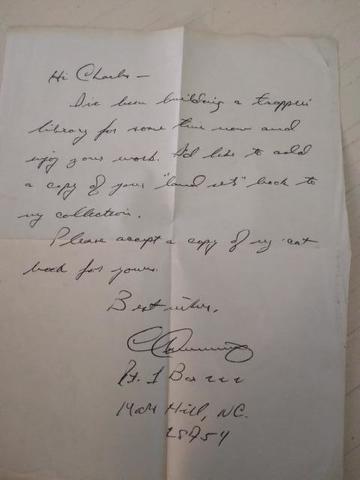 Hi Charles —
I've been building a trappers'
library for some time now and
enjoy your work. I'd like to add
a copy of your "land sets" book to
my collection.
Please accept a copy of my cat
book for yours.
Best wishes,
Rt. 1 Box
Hill, NC.
28754